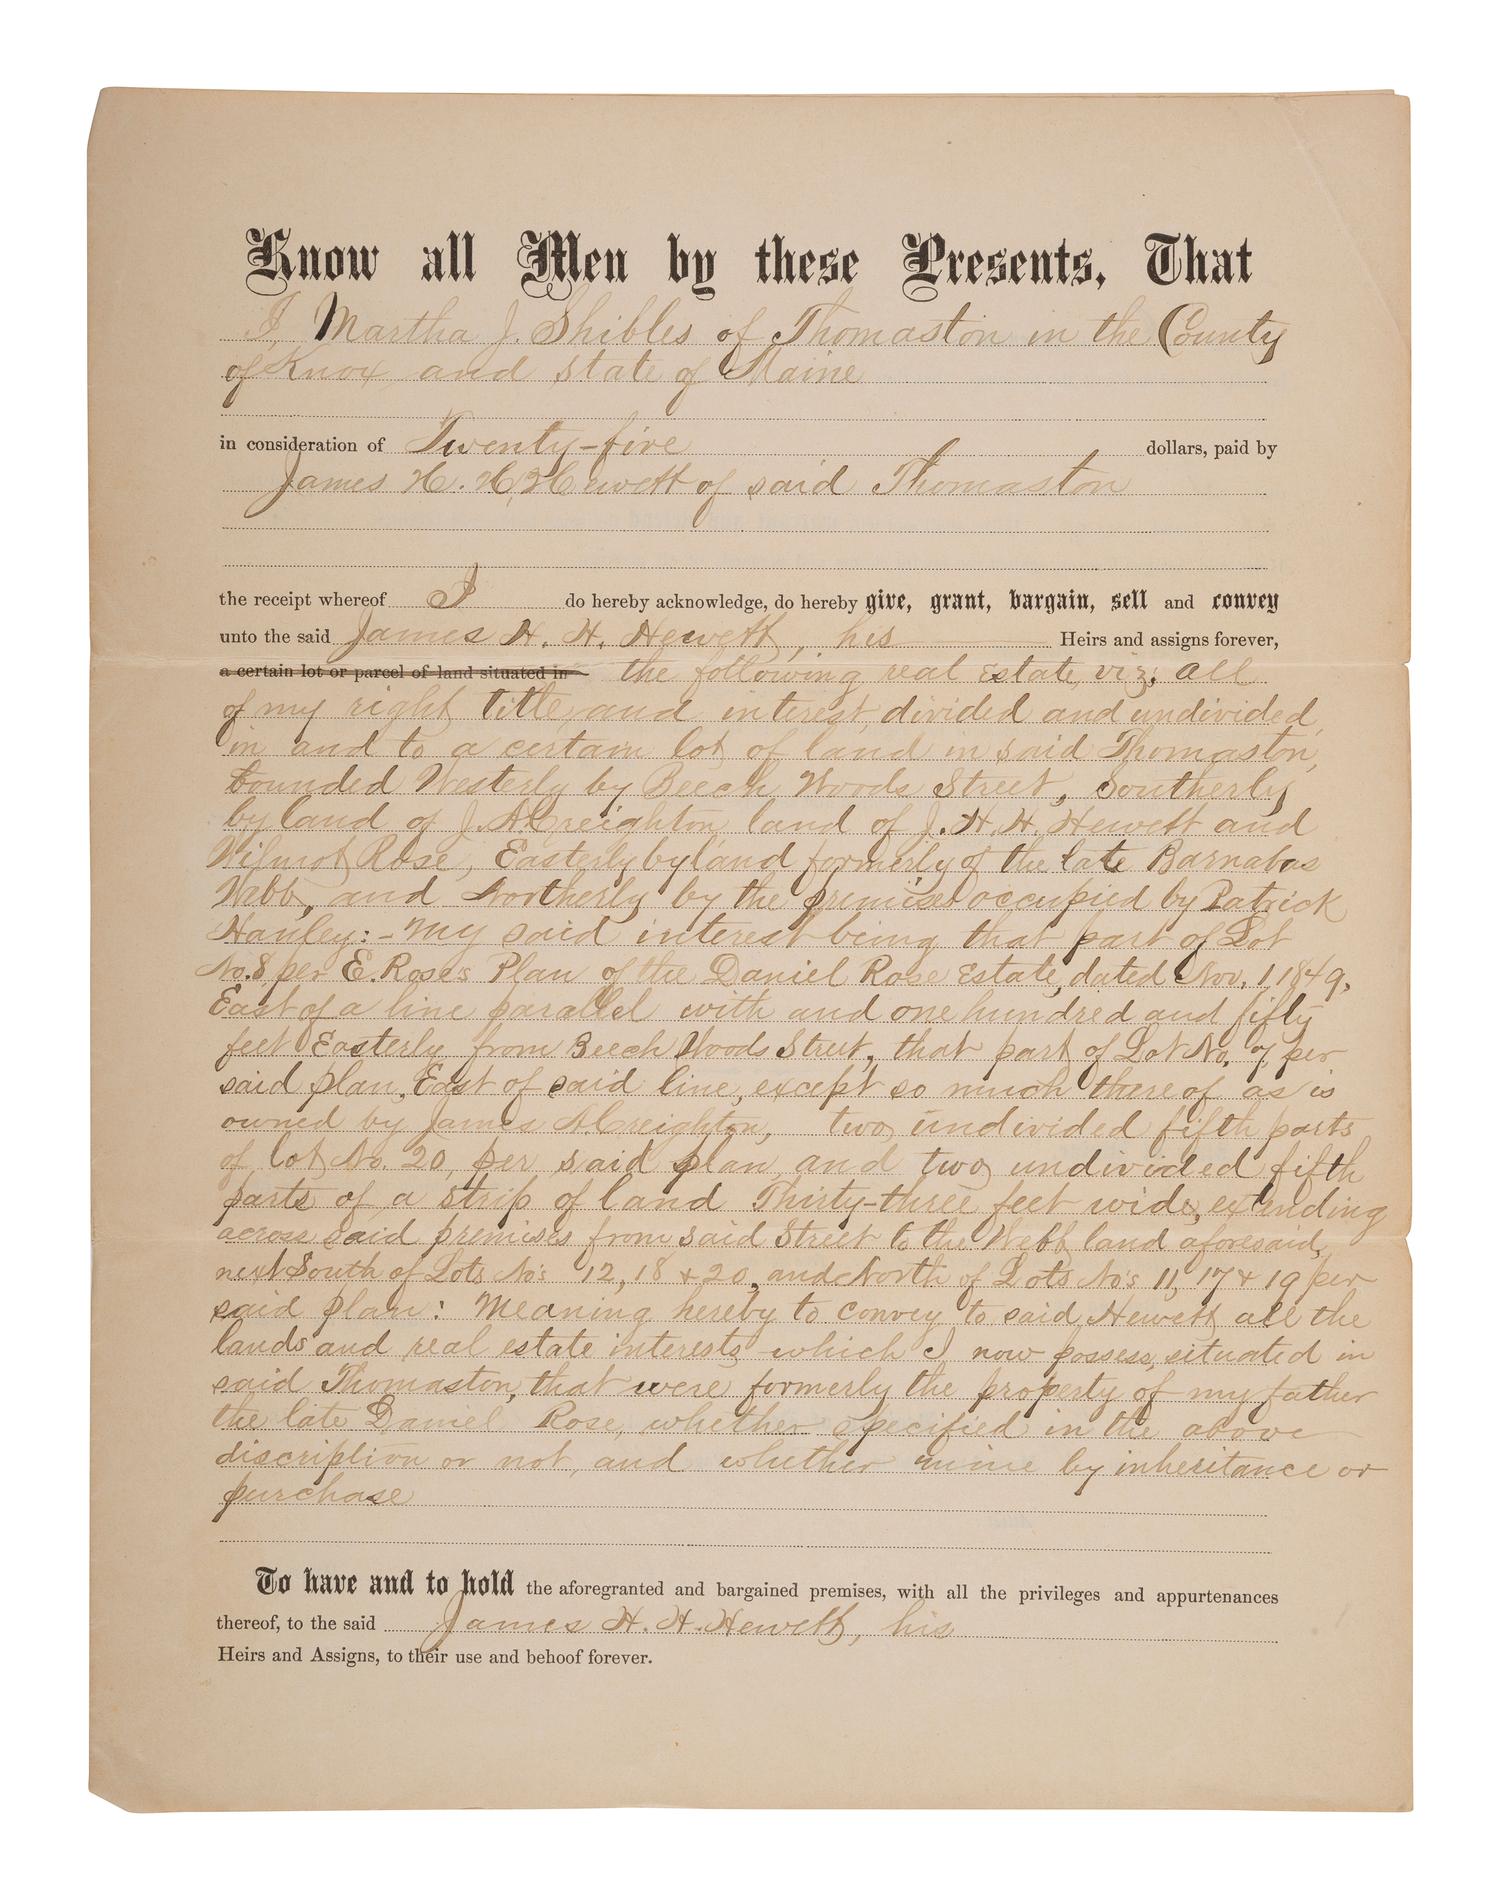 Know all Men by these Presents, That
I, Martha J. Shibles of Thomaston in the County
of Knox and state of Maine
in consideration of Twenty-five dollars, paid by
James H. H. Hewett of said Thomaston
the receipt whereof I do hereby acknowledge, do hereby give, grant, bargain, sell and convey
unto the said James H. H. Hewett, his Heirs and assigns forever,
a certain lot or parcel of land situated in the following real Estate, viz: all
of my right title, and interest, divided and undivided,
in and to a certain lot of land in said Thomaston,
bounded Westerly by Beech Woods Street, Southerly
by land of J. A. Creighton, land of J. H. H. Hewett and
Wilmot Rose, Easterly by land formerly of the late Barnabas
Webb, and Northerly by the premises occupied by Patrick
Hanley:- My said interest being that part of Lot
No. 8, per E. Rose's Plan of the Daniel Rose Estate, dated Nov. 1, 1849,
East of a line parallel with and one hundred and fifty
feet Easterly from Beech Woods Street, that part of Lot No. 7, per
said plan, East of said line, except so much there of as is
owned by James A. Creighton, two undivided fifth parts
of lot No. 20, per said plan, and two undivided fifth
parts of a strip of land Thirty-three feet wide, extending
across said premises from said Street to the Webb land aforesaid,
next South of Lots No's 12, 18 & 20, and North of Lots No's 11, 17 & 19 per
said plan: Meaning hereby to convey to said Hewett all the
lands and real estate interests which I now possess, situated in
said Thomaston, that were formerly the property of my father
the late Daniel Rose, whether specified in the above
discription or not, and whether mine by inheritance or
purchase
To have and to hold the aforegranted and bargained premises, with all the privileges and appurtenances
thereof, to the said James H. H. Hewett, his
Heirs and Assigns, to their use and behoof forever.